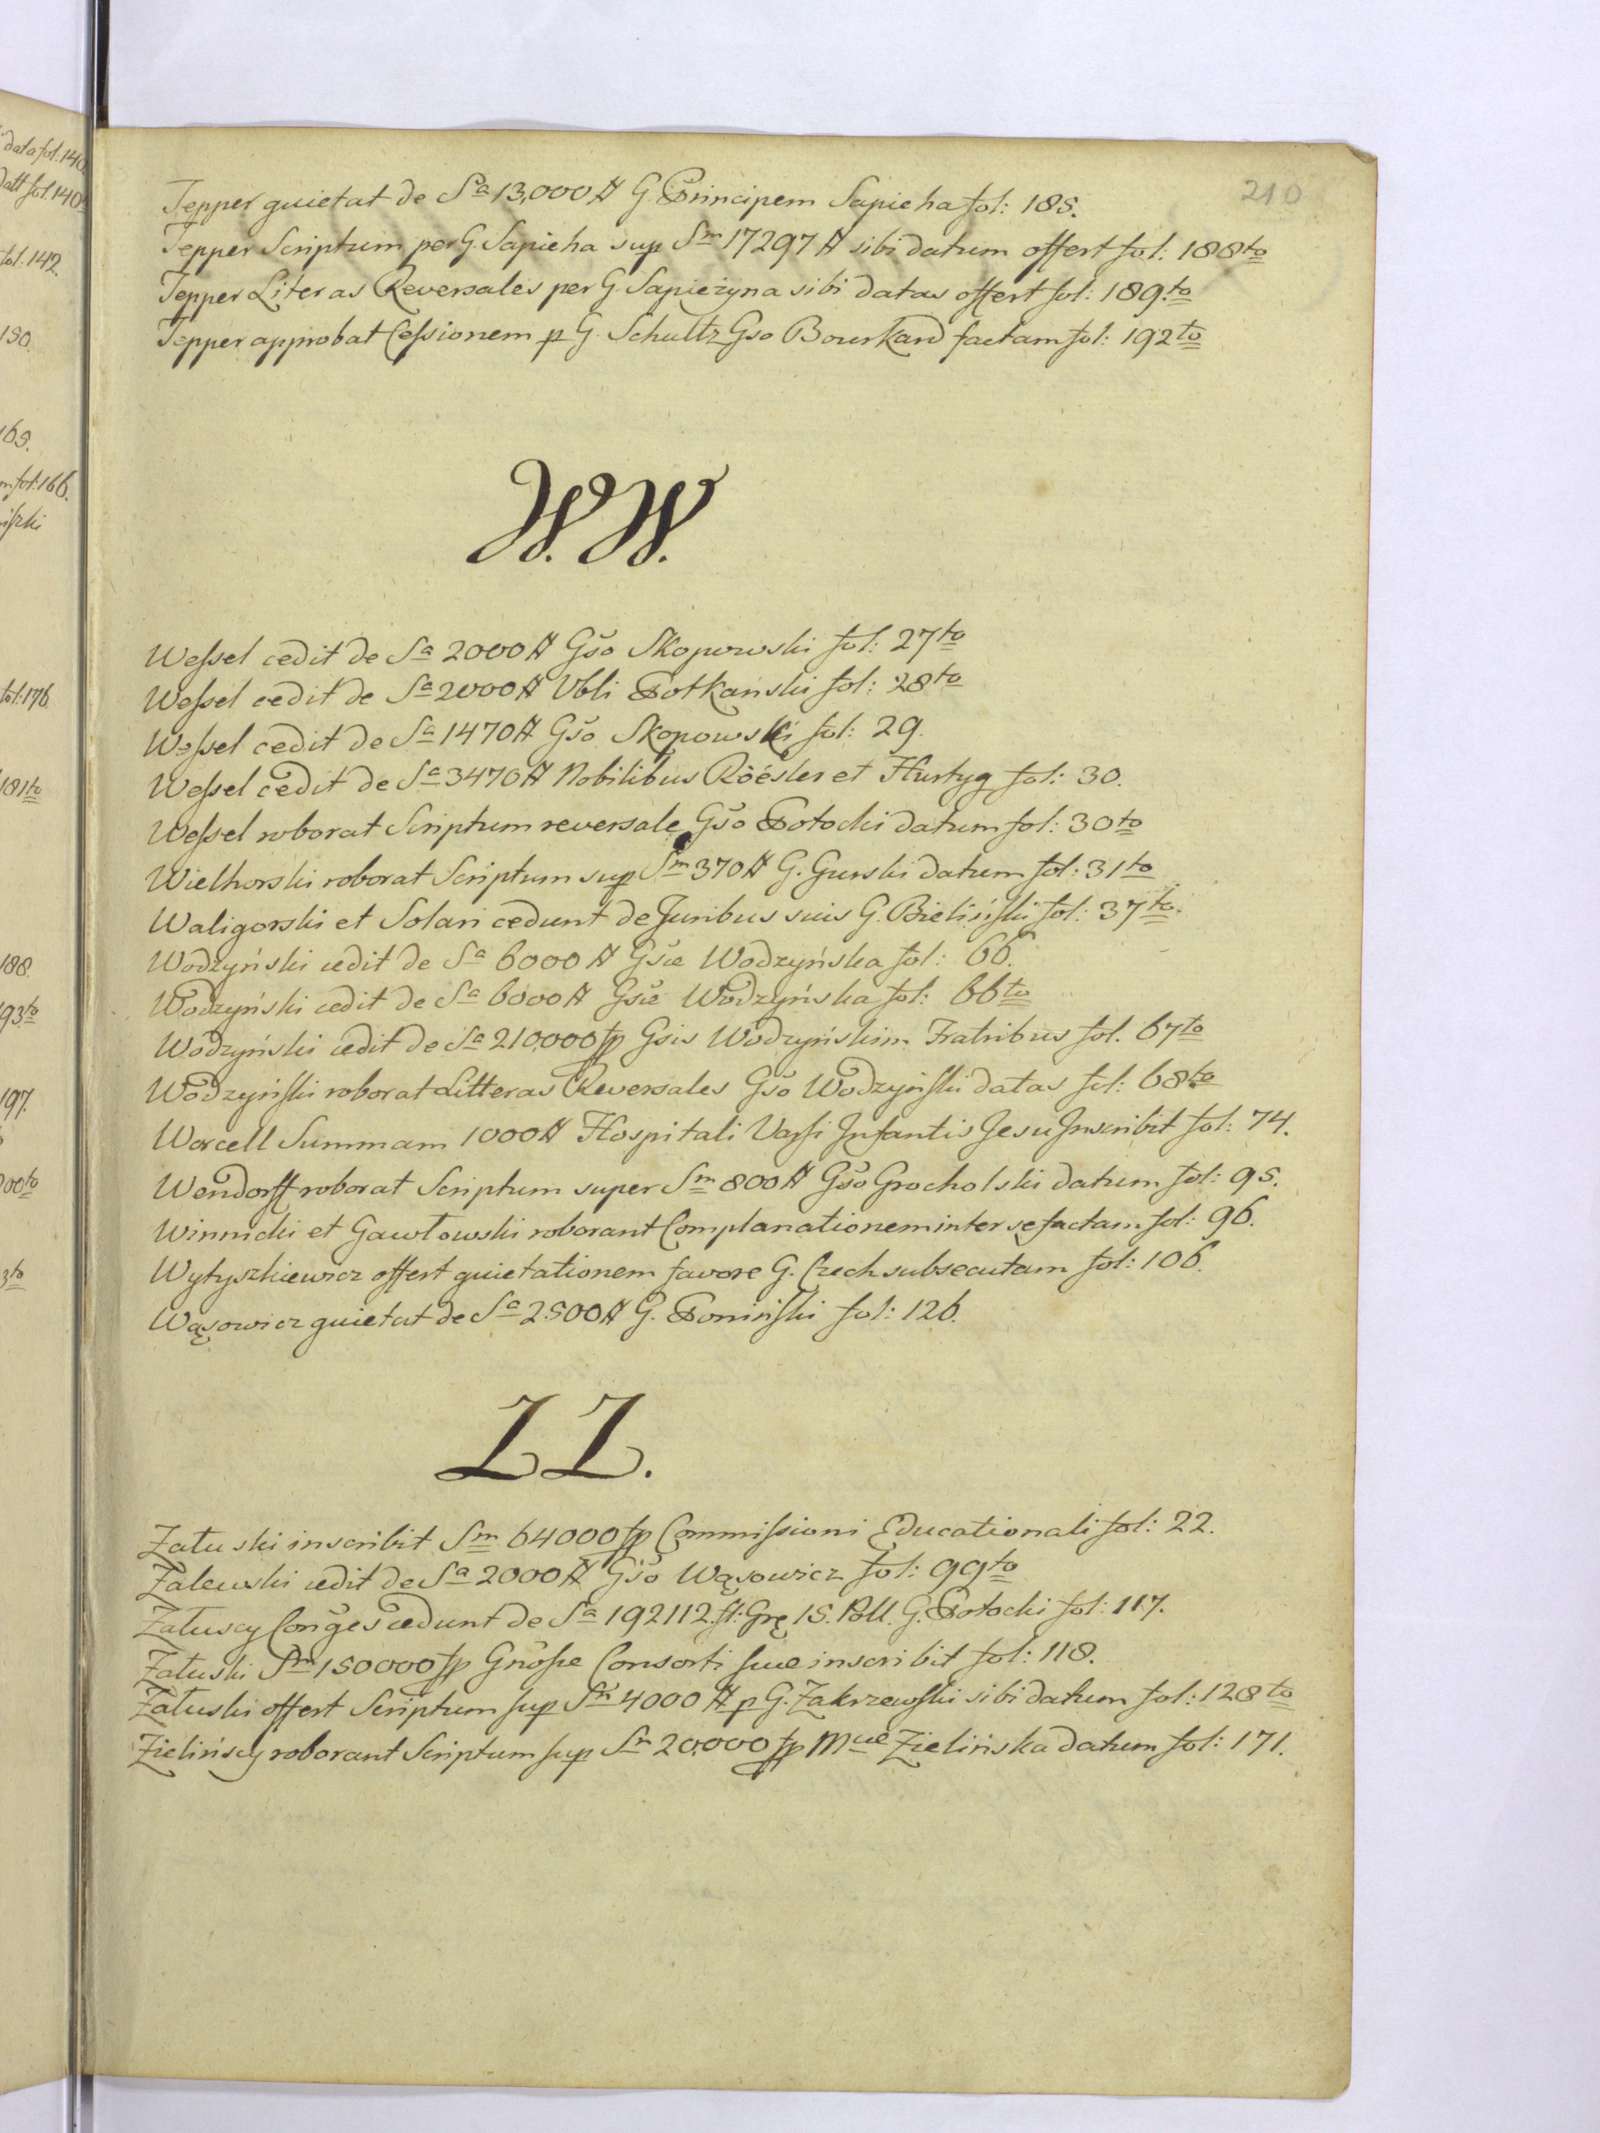 210
Tepper quietat de Sa 13,000 # G. Principem Sapieha fol: 185.
Tepper Scriptum per G Sapieha sup Sm 17297 # sibi datum offert fol: 188to
Tepper Literas Reversales per G. Sapieżyna sibi datas offert fol: 189.to
Tepper approbat Cessionem p G. Schultz Gso Bourkard factam fol: 192to
W. W.
Wessel cedit de Sa 2000 # Gšo Skopowski fol: 27to
Wessel cedit de Sa 2000 # Vbli Potkański fol: 28to
Wessel cedit de Sa 1470 # Gšo Skopowski fol: 29.
Wessel cedit de Sa 3470 # Nobilibus Röésler et Hurtyg fol: 30.
Wessel roborat Scriptum reversale Gšo Potocki datum fol: 30to
Wielhorski roborat Scriptum sup Sm 370 # G. Gurski datum fol: 31to
Waligorski et Solari cedunt de Juribus suis G. Bieliński fol: 37to.
Wodzyński cedit de Sa 6000 # Gšæ Wodzyńska fol: 66.
Wodzyński cedit de Sa 6000 # Gšæ Wodzyńska fol: 66to
Wodzyński cedit de Sa 210,000 fp Gsis Wodzyńskim Fratribus fol. 67to
Wodzyński roborat Litteras Reversales Gšo Wodzyński datas fol: 68to
Worcell Summam 1000 # Hospitali Varsi Infantis Jesu Inscribit fol: 74.
Wendorff roborat Scriptum super Sm 800 # Gšo Grocholski datum fol: 95.
Winnicki et Gawłowski roborant Complanationem inter se factam fol: 96.
Wytyszkiewicz offert quietationem favore G. Czech subsecutam fol: 106.
Wąsowicz quietat de Sa 2500 # G. Poniński fol: 126.
Z Z.
Załuski inscribit Sm 64000 fp Commissioni Educationali fol: 22.
Zalewski cedit de Sa 2000 # Gšo Wąsowicz fol: 99to
Załuscy Conges cedunt de Sa 192112. fl: Grę 15. Poll. G. Potocki fol: 117.
Załuski Sm 150000 fp Gnosæ Consorti suæ inscribit fol: 118.
Załuski offert Scriptum sup Sm 4000 # p G. Zakrzewski sibi datum fol: 128to
Zielińscy roborant Scriptum sup Sm 20,000 fp Mcæ Zielińska datum fol: 171.